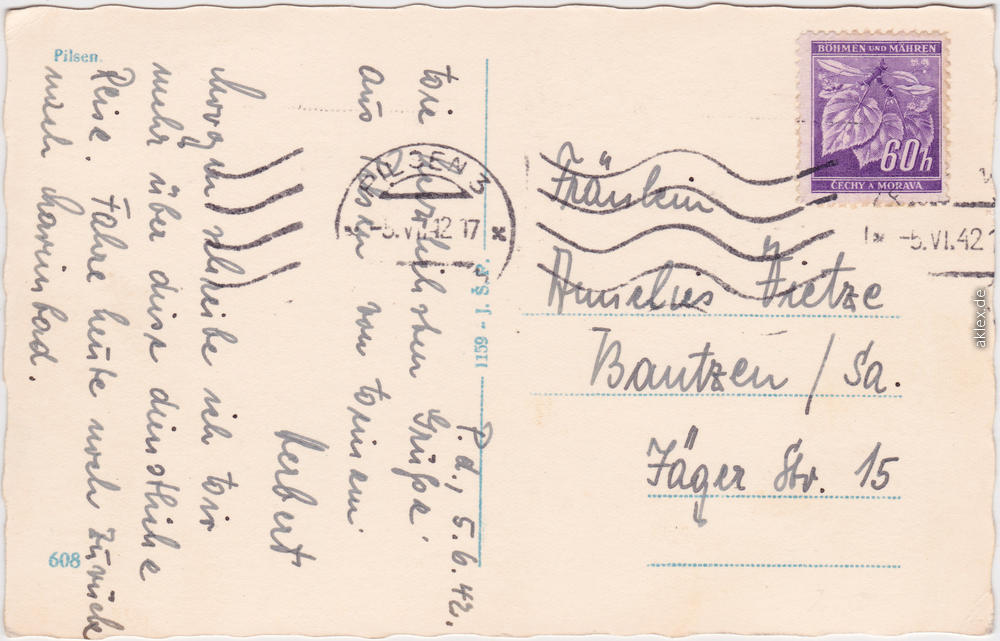 Pilsen.
P. d., 5.6.42.
Die herzlichsten Grüße
aus Pilsen von Deinem
Herbert
Morgen schreibe ich Dir
mehr über diese dienstliche
Reise. Fahre heute noch zurück
nach Marienbad.
608
1159 - J. Š. P.
BÖHMEN UND MÄHREN
60h
ČECHY A MORAVA
PILSEN 3
-5.VI.42 17
-5.VI.42 1
Fräulein
Annelies Dietze
Bautzen / Sa.
Jäger Str. 15
aklex.de